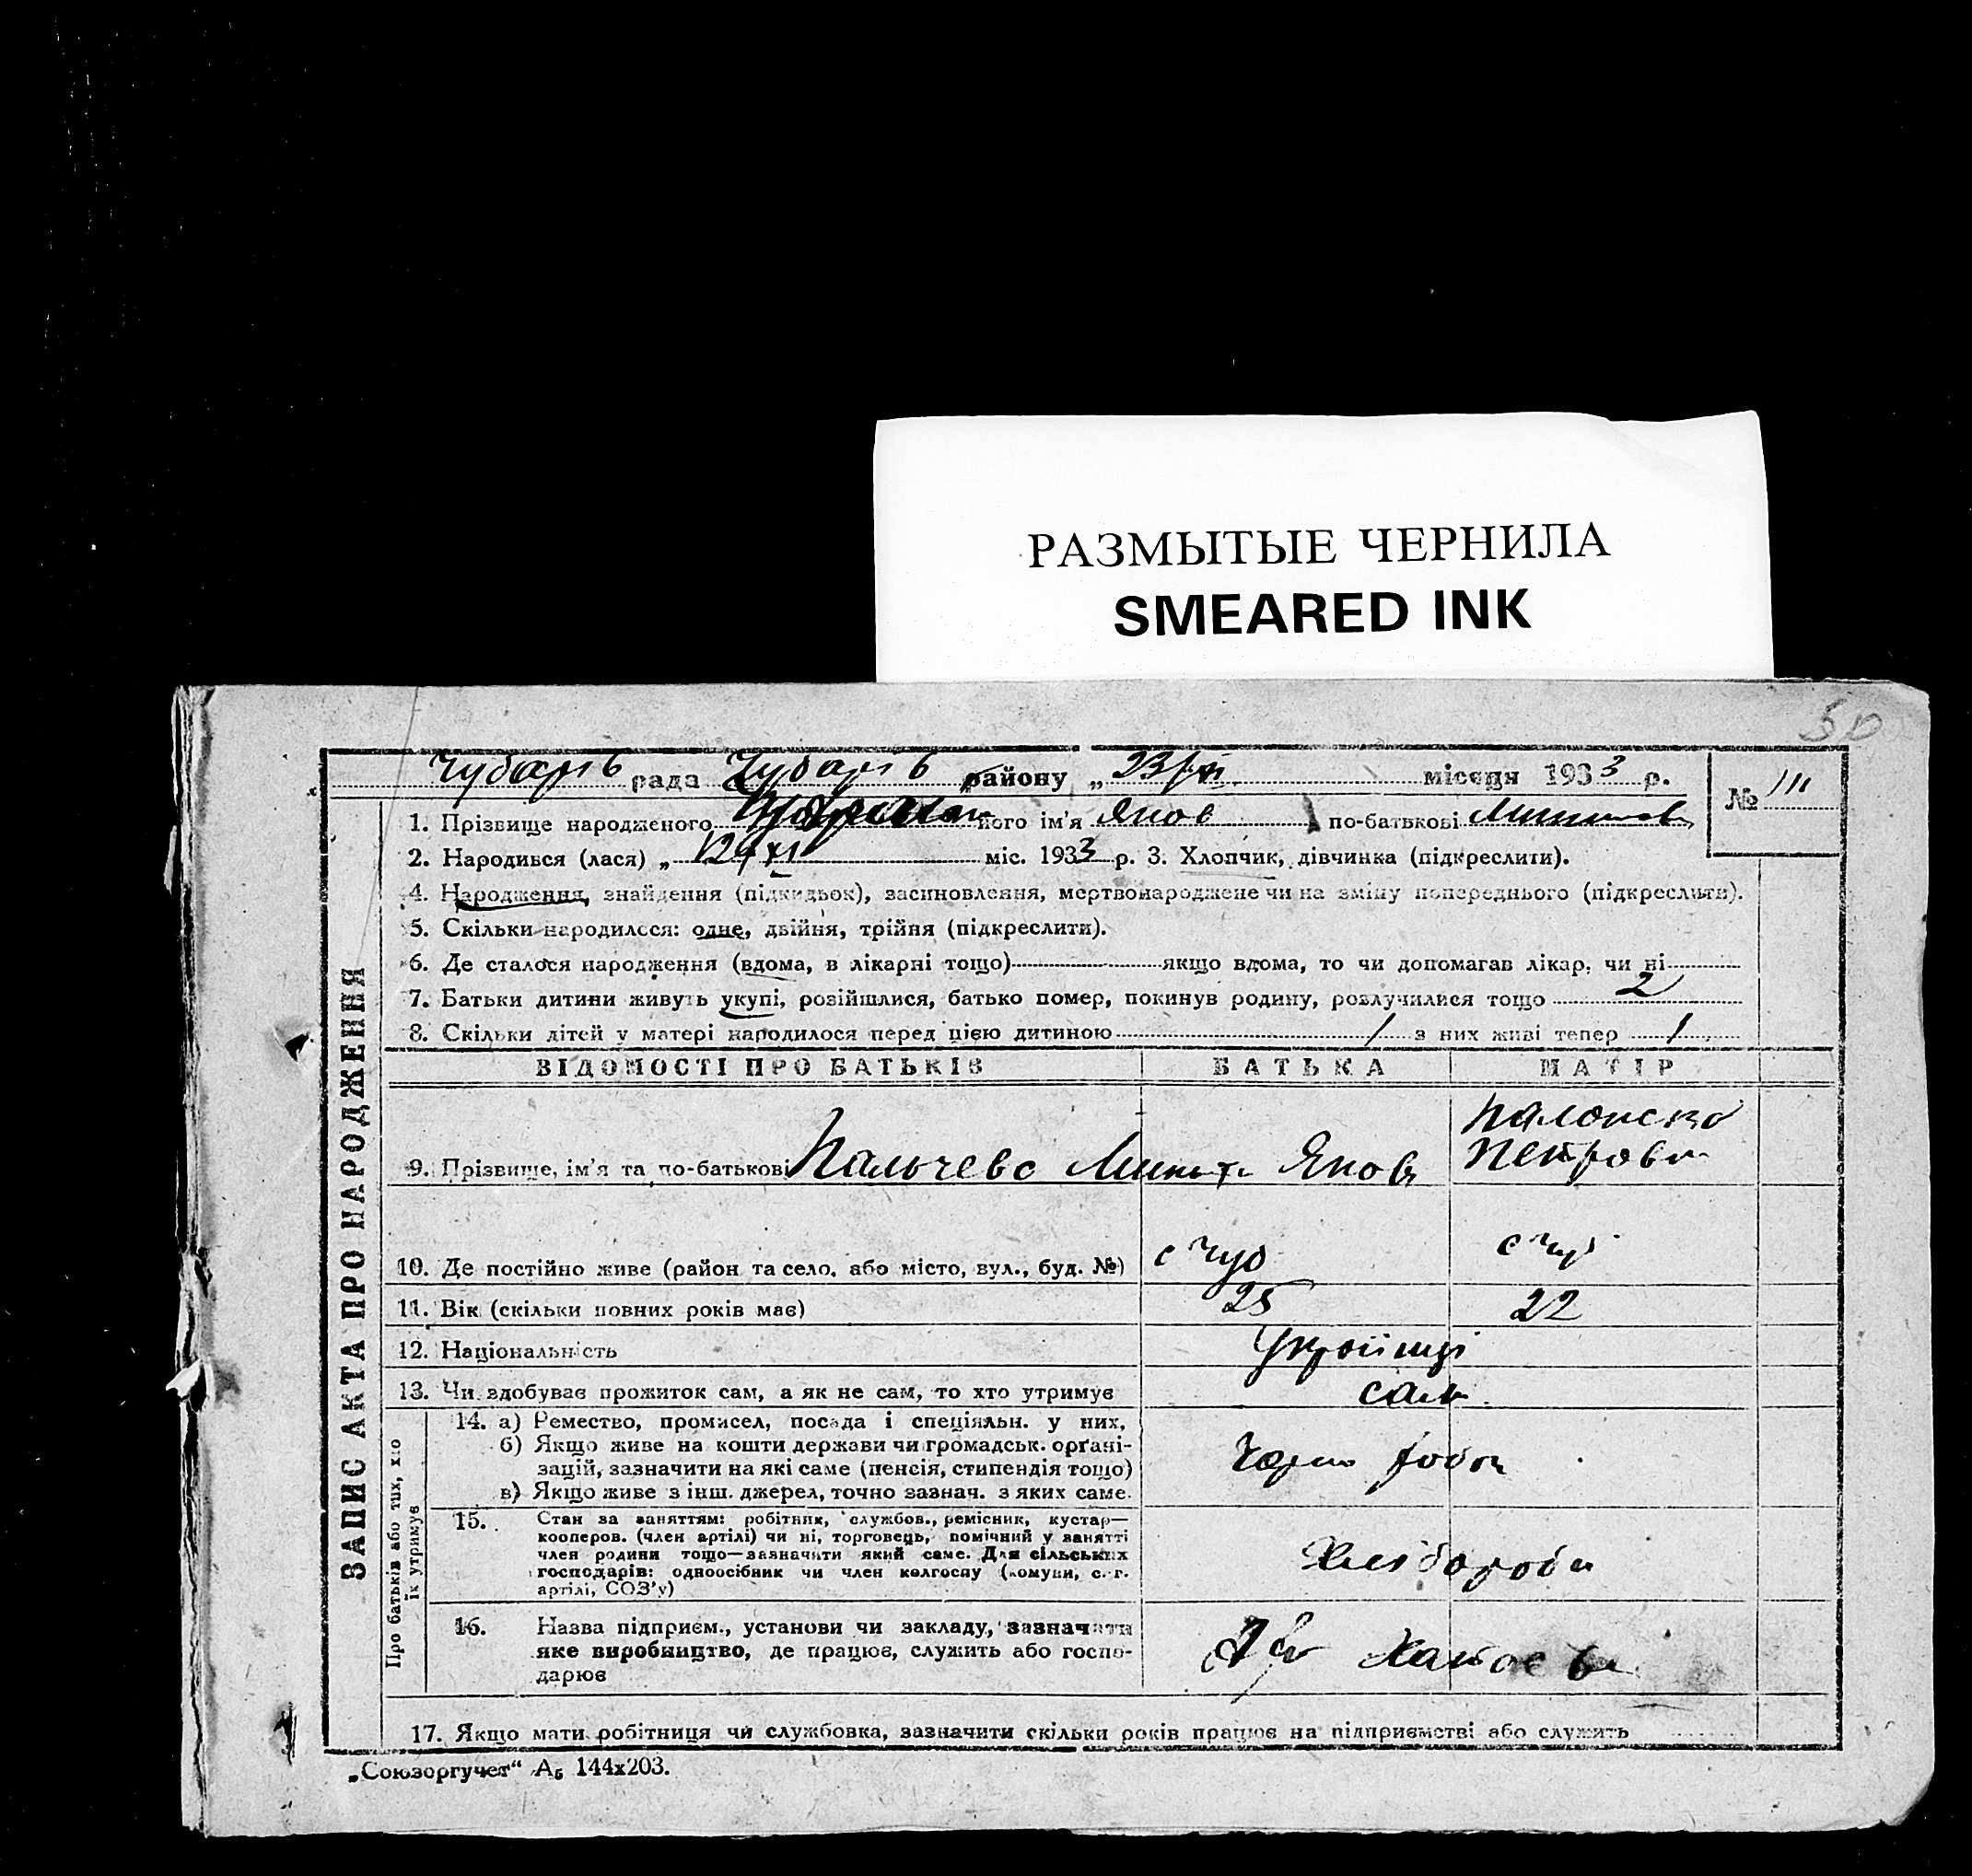 РАЗМЫТЫЕ ЧЕРНИЛА
SMEARED INK
50
Чубарів рада Чубарів району „ 23/ місяця 1933 р.
№ 111
1. Прізвище народженого його ім'я Яков по-батькові
2. Народився (лася) „ міс. 1933 р. 3. Хлопчик, дівчинка (підкреслити).
4. Народження, знайдення (підкидьок), засиновлення, мертвонароджене чи на зміну попереднього (підкреслити).
5. Скільки народилося: одне, двійня, трійня (підкреслити).
6. Де сталося народження (вдома, в лікарні тощо) якщо вдома, то чи допомагав лікар, чи ні
7. Батьки дитини живуть укупі, розійшлися, батько помер, покинув родину, розлучилися тощо 2
8. Скільки дітей у матері народилося перед цією дитиною 1 з них живі тепер 1
ЗАПИС АКТА ПРО НАРОДЖЕННЯ
ВІДОМОСТІ ПРО БАТЬКІВ БАТЬКА МАТІР
9. Прізвище, ім'я та по-батькові Пальчево Яков Петровн
10. Де постійно живе (район та село, або місто, вул., буд. №) с Чуб с Чуб
11. Вік (скільки повних років має) 25 22
12. Національність Українці
13. Чи здобуває прожиток сам, а як не сам, то хто утримує сам
Про батьків або тих, хто
їх утримує
14. а) Ремество, промисел, посада і спеціяльн. у них,
б) Якщо живе на кошти держави чи громадськ. орґані-
зацій, зазначити на які саме (пенсія, стипендія тощо)
в) Якщо живе з інш. джерел, точно зазнач. з яких саме.
Чорно робоч
15. Стан за заняттям: робітник, службов., ремісник, кустар—
кооперов. (член артілі) чи ні, торговець, помічний у занятті
член родини тощо—зазначити який саме. Для сільських
господарів: одноосібник чи член колгоспу (комуни, с.-г.
артілі, СОЗ'у)
Хлібороби
16. Назва підприєм., установи чи закладу, зазначити
яке виробництво, де працює, служить або госпо-
дарює
17. Якщо мати робітниця чи службовка, зазначити скільки років працює на підприємстві або служить
„Союзоргучет“ А5 144х203.